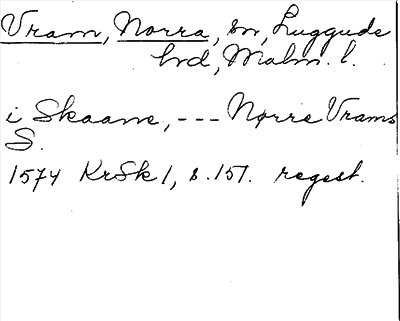 Vram, Norra, sn, Luggude
hrd, Malm. l.
i Skaane, --- Nørre Vrams
S.
1574 KrSk 1, s. 151. regest.